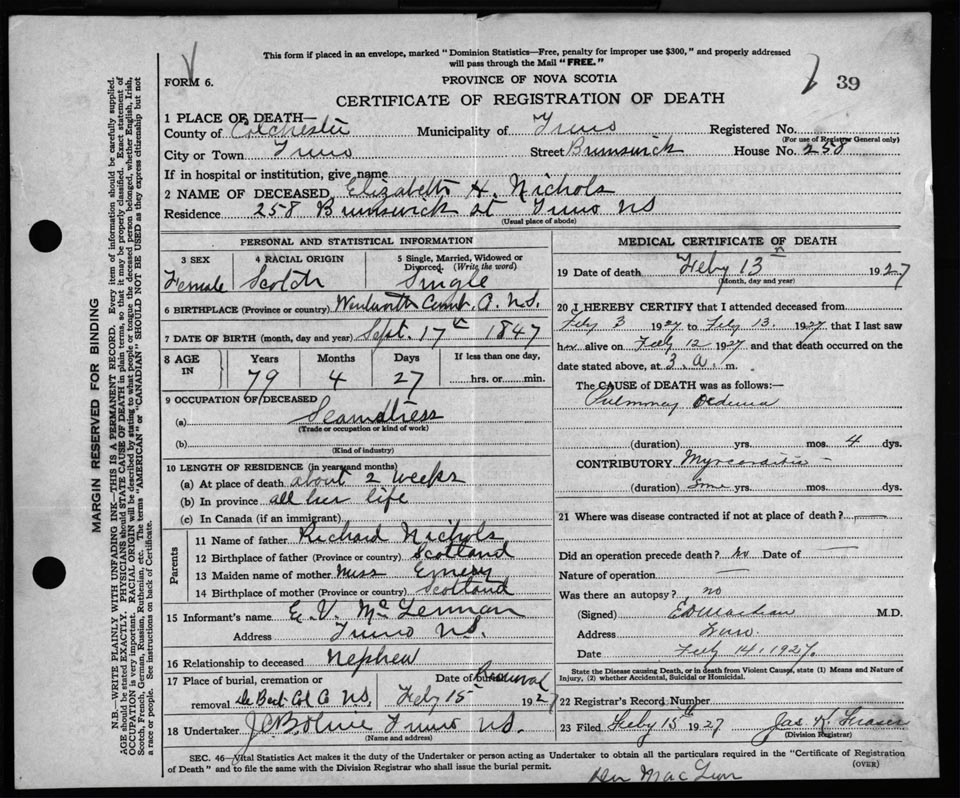 This form if placed in an envelope, marked "Dominion Statistics—Free, penalty for improper use $300," and properly addressed
will pass through the Mail "FREE."
FORM 6.
PROVINCE OF NOVA SCOTIA
39
CERTIFICATE OF REGISTRATION OF DEATH
1 PLACE OF DEATH—
County of Colchester Municipality of Truro Registered No.
(For use of Registrar General only)
City or Town Truro Street Brunswick House No. 258
If in hospital or institution, give name
2 NAME OF DECEASED Elizabeth H. Nichols
Residence 258 Brunswick st Truro NS
(Usual place of abode)
PERSONAL AND STATISTICAL INFORMATION
3 SEX
Female
4 RACIAL ORIGIN
Scotch
5 Single, Married, Widowed or
Divorced. (Write the word)
Single
6 BIRTHPLACE (Province or country) Wentworth Cumb. Co. N.S.
7 DATE OF BIRTH (month, day and year) Sept. 17th 1847
8 AGE IN Years Months Days If less than one day,
79 4 27 hrs. or min.
9 OCCUPATION OF DECEASED
(a) Seamstress
(Trade or occupation or kind of work)
(b)
(Kind of industry)
10 LENGTH OF RESIDENCE (in years and months)
(a) At place of death about 2 weeks
(b) In province all her life
(c) In Canada (if an immigrant)
Parents
11 Name of father Richard Nichols
12 Birthplace of father (Province or country) Scotland
13 Maiden name of mother Miss Emery
14 Birthplace of mother (Province or country) Scotland
15 Informant's name E. V. McLennan
Address Truro N.S.
16 Relationship to deceased Nephew
17 Place of burial, cremation or Date of burial Removal
removal De Bert Col Co NS. Feby 15 1927
18 Undertaker Truro NS.
(Name and address)
MEDICAL CERTIFICATE OF DEATH
19 Date of death Feby 13th 1927
(Month, day and year)
20 I HEREBY CERTIFY that I attended deceased from
Feby 3 1927 to Feby 13. 1927 that I last saw
her alive on Feby 12 1927 and that death occurred on the
date stated above, at 3. a. m.
The CAUSE OF DEATH was as follows:—
Pulmonary Oedema
(duration) yrs. mos. 4 dys.
CONTRIBUTORY Myocarditis
(duration) yrs. mos. dys.
21 Where was disease contracted if not at place of death?
Did an operation precede death? no Date of —
Nature of operation —
Was there an autopsy? no
(Signed) M.D.
Address Truro.
Date Feby 14, 1927.
State the Disease causing Death, or in death from Violent Causes, state (1) Means and Nature of
Injury, (2) whether Accidental, Suicidal or Homicidal.
22 Registrar's Record Number
23 Filed Feby 15th 1927 Jas K. Fraser
(Division Registrar)
SEC. 46—Vital Statistics Act makes it the duty of the Undertaker or person acting as Undertaker to obtain all the particulars required in the "Certificate of Registration
of Death" and to file the same with the Division Registrar who shall issue the burial permit.
(OVER)
MARGIN RESERVED FOR BINDING
N.B.—WRITE PLAINLY WITH UNFADING INK—THIS IS A PERMANENT RECORD. Every item of information should be carefully supplied.
AGE should be stated EXACTLY. PHYSICIANS should STATE CAUSE OF DEATH in plain terms, so that it may be properly classified. Exact statement of
OCCUPATION is very important. RACIAL ORIGIN will be described by stating to what people or tongue the deceased person belonged, whether English, Irish,
Scotch, French, German, Russian, Ruthenian, etc. The terms "AMERICAN" or "CANADIAN" SHOULD NOT BE USED as they express citizenship but not
a race or people. See instructions on back of Certificate.